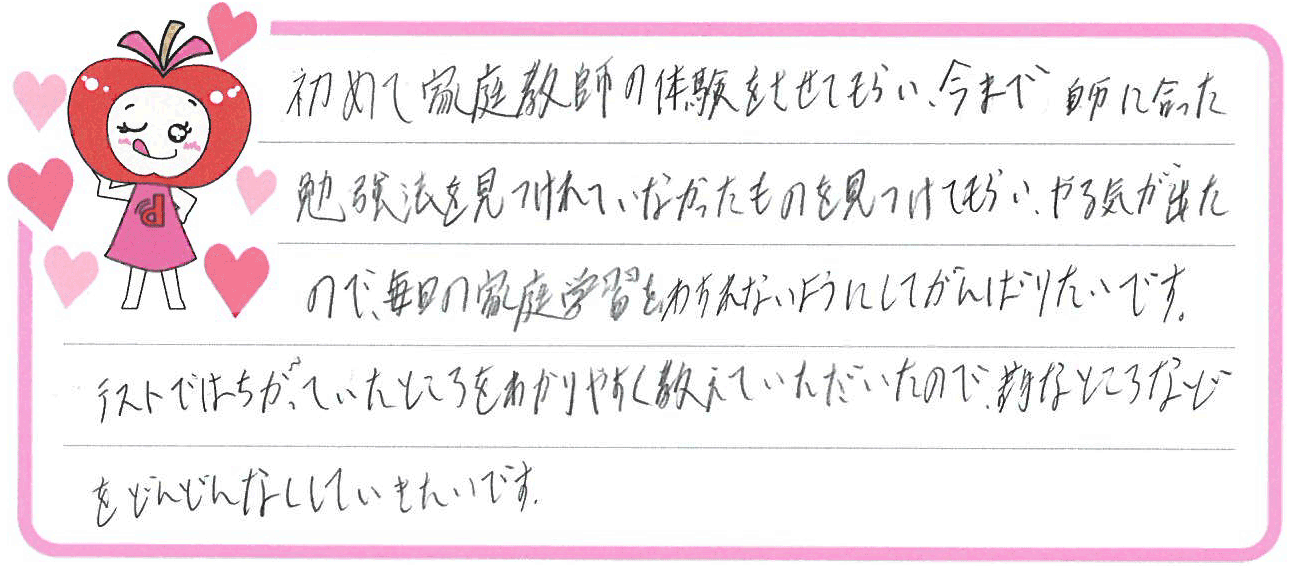 初めて家庭教師の体験をさせてもらい、今まで自分に合った
勉強法を見つけれていなかったものを見つけてもらい、やる気が出た
ので、毎日の家庭学習をわすれないようにしてがんばりたいです。
テストではちがっていたところをわかりやすく教えていただいたので、苦手なところなど
をどんどんなくしていきたいです。